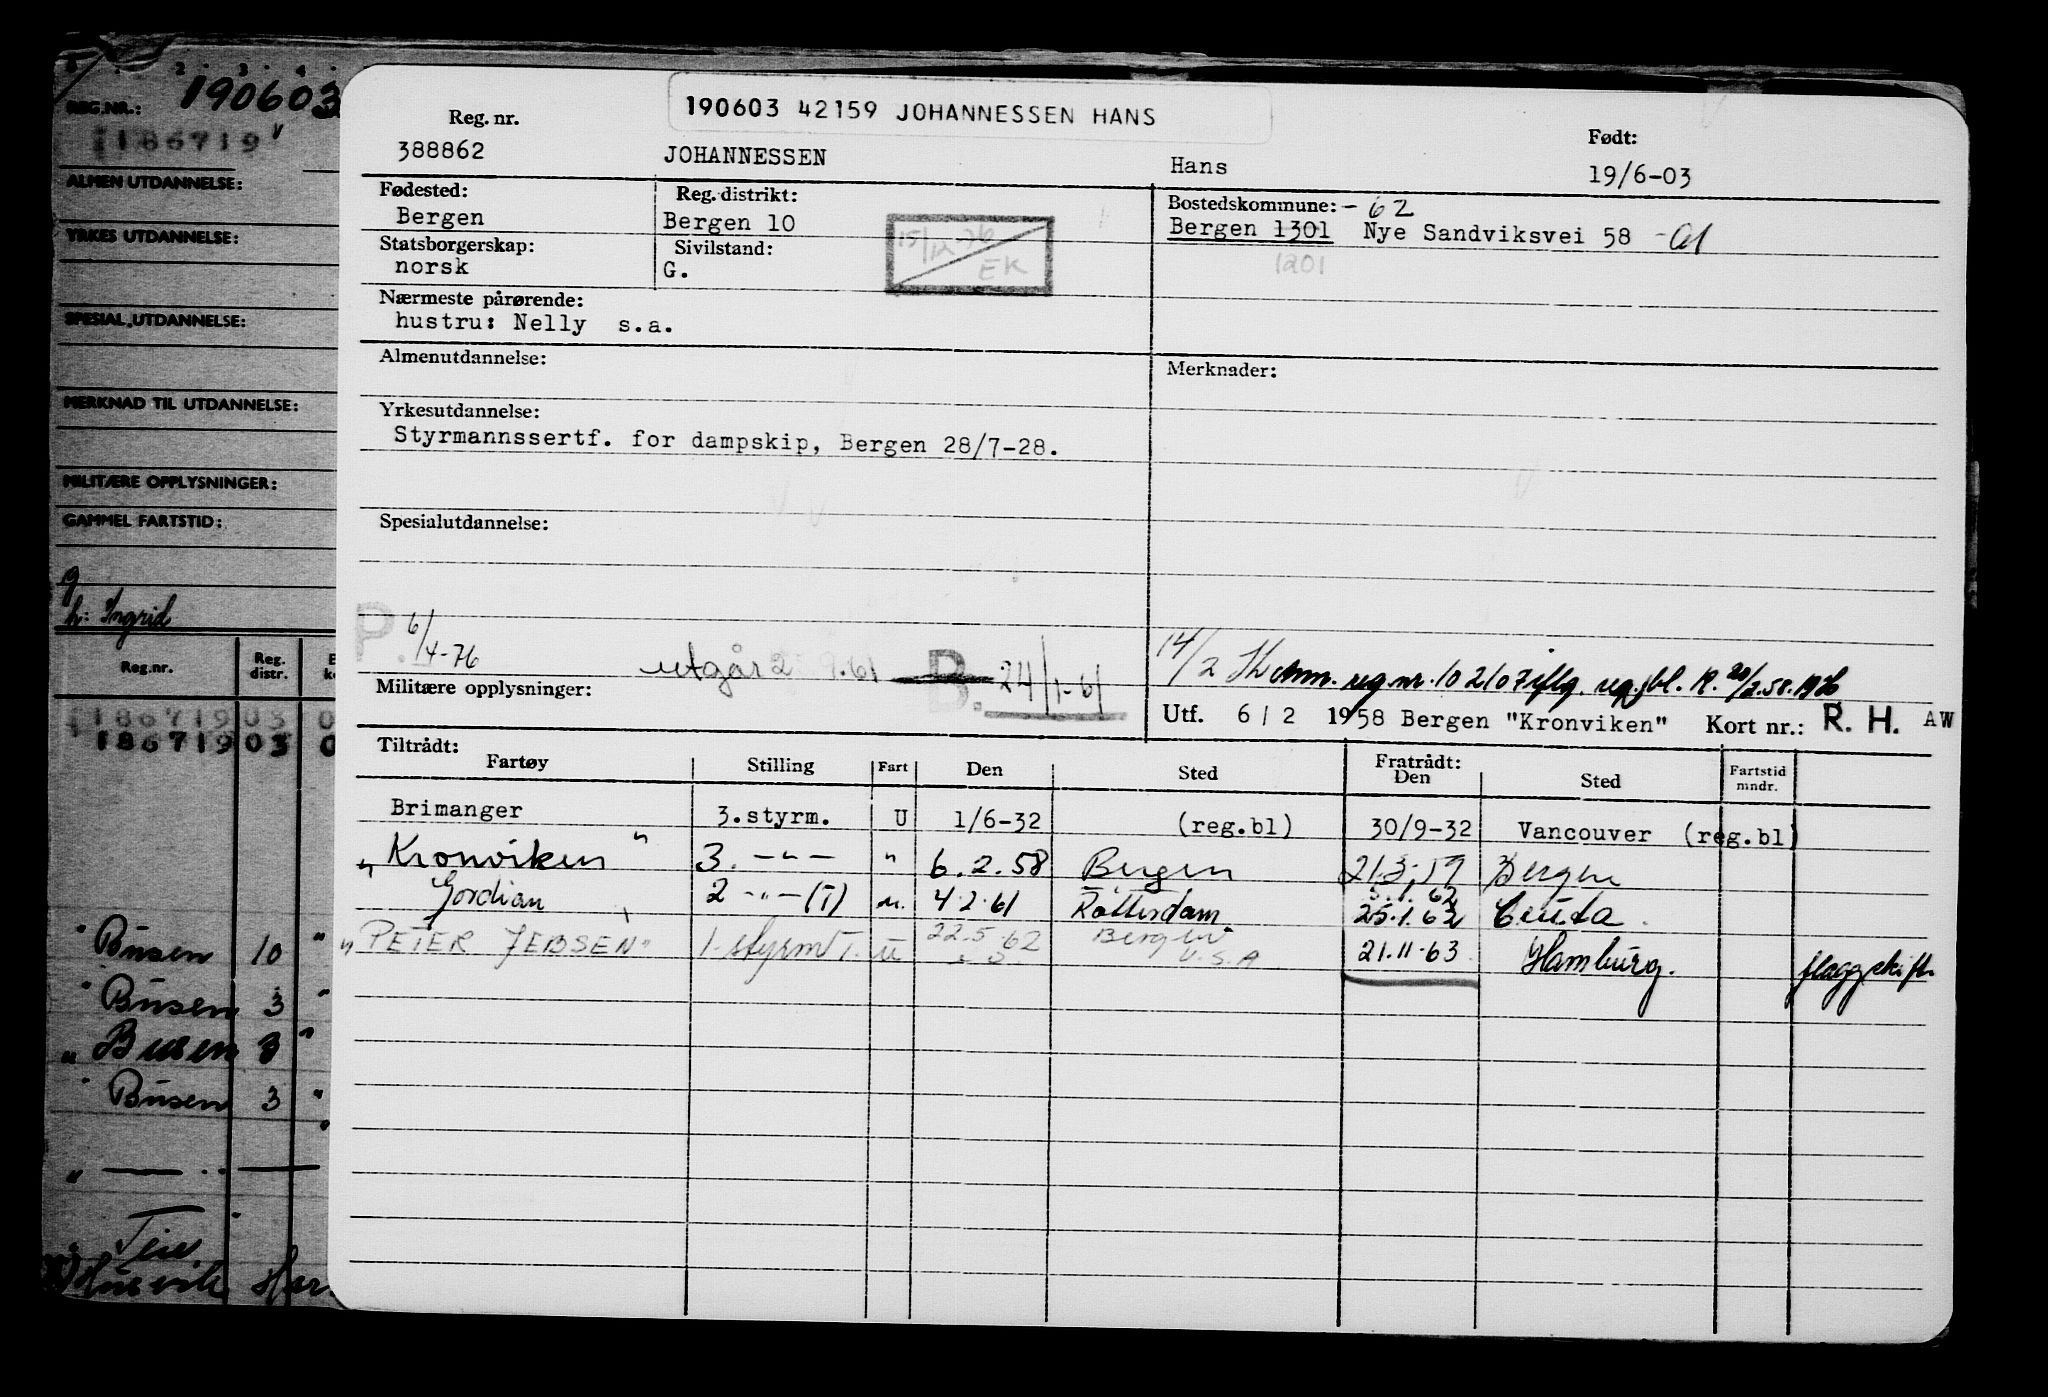 190603 42159 JOHANNESSEN HANS
Reg. nr.
Født:
388862 JOHANNESSEN Hans 19/6-03
Fødested: Reg. distrikt: Bostedskommune: - 62
Bergen Bergen 10 Bergen 1301 Nye Sandviksvei 58 - 01
1201
Statsborgerskap: Sivilstand:
norsk G.
15/12-76
EK
Nærmeste pårørende:
hustru: Nelly s.a.
Almenutdannelse: Merknader:
Yrkesutdannelse:
Styrmannssertf. for dampskip, Bergen 28/7-28.
Spesialutdannelse:
P. 6/4-76 utgår 2 9.61 B. 24/1-61
14/2 reg.nr. 102107 iflg. reg.bl. R. 20/2.58.1926
Militære opplysninger:
Utf. 6/2 1958 Bergen "Kronviken" Kort nr.: R. H. AW
Tiltrådt: Fratrådt:
Fartøy Stilling Fart Den Sted Den Sted Fartstid mndr.
Brimanger 3.styrm. U 1/6-32 (reg.bl) 30/9-32 Vancouver (reg.bl)
"Kronviken" 3. -"- " 6.2.58 Bergen 21.3.59 Bergen
5.1.62
Gordian 2 -"- (I) u. 4.2.61 Rotterdam 25.1.62 Ceuta.
"PETER JEBSEN" 1. styrm I. U 22.5.62 Bergen 21.11.63 Hamburg. flaggskift
U.S.A
REG.NR.: 190603
186719
ALMEN UTDANNELSE:
YRKES UTDANNELSE:
SPESIAL UTDANNELSE:
MERKNAD TIL UTDANNELSE:
MILITÆRE OPPLYSNINGER:
GAMMEL FARTSTID:
g
h: Ingrid
Reg.nr. Reg. distr.
186719 03 0
186719 03 0
" Busen 10 "
" Busen 3 "
" Busen 3 "
" Busen 3 "